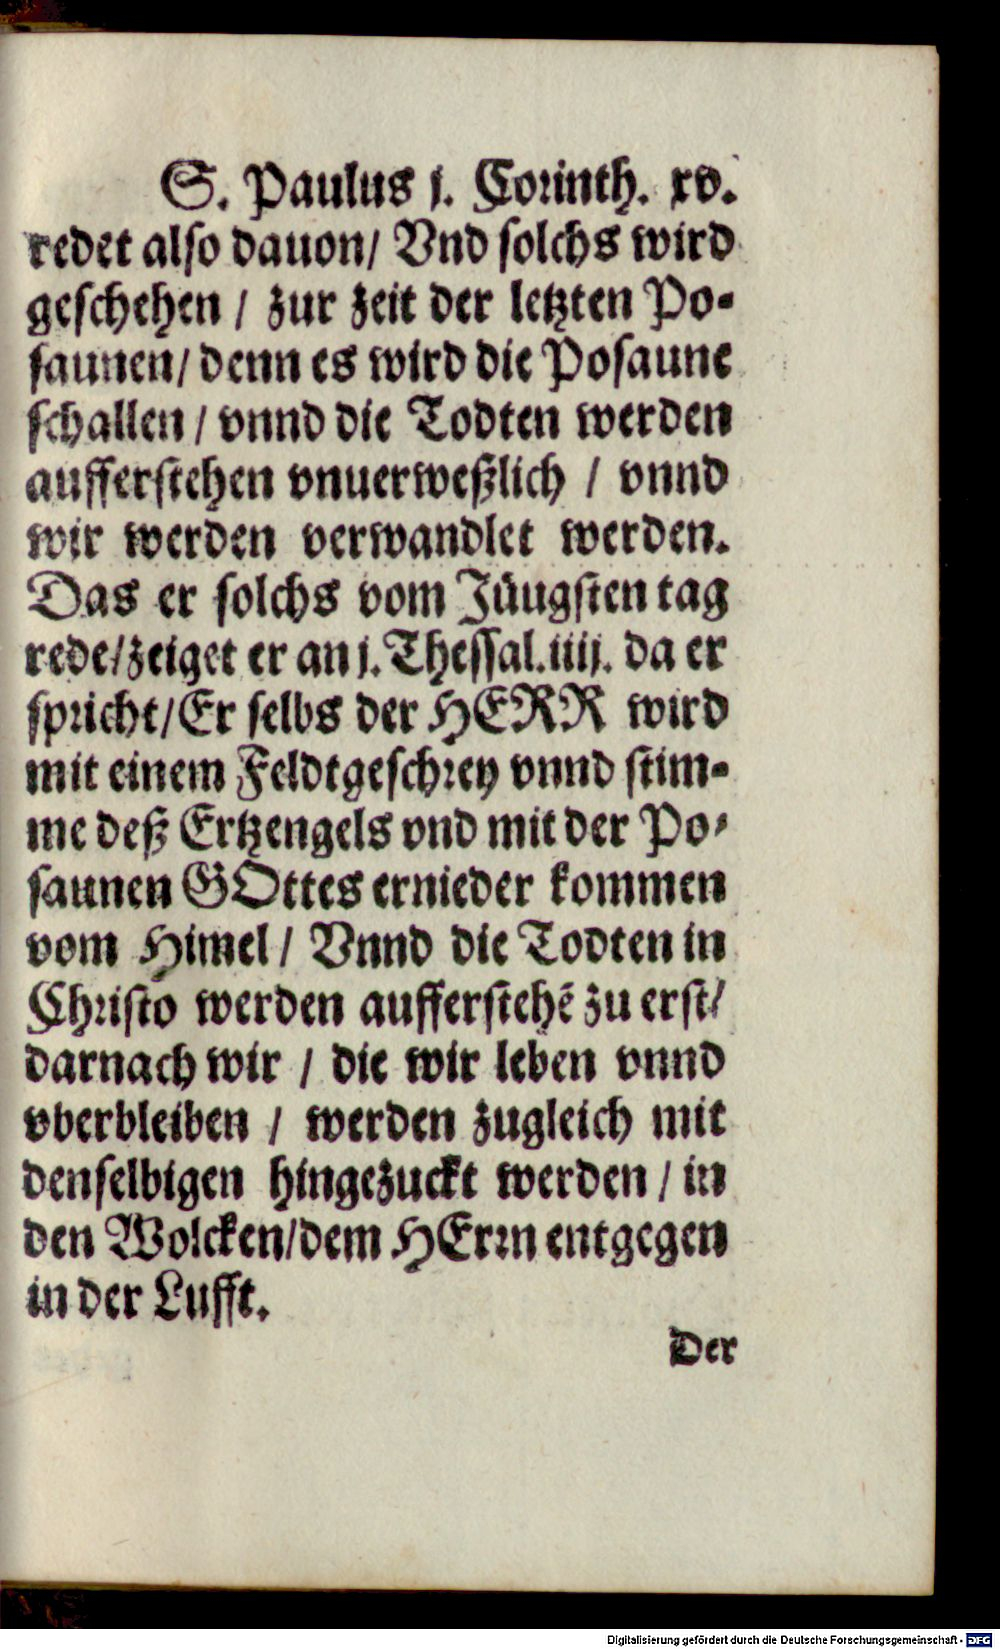 S. Paulus j. Corinth. xv.
redet also dauon/ Vnd solchs wird
geschehen / zur zeit der letzten Po-
saunen/ denn es wird die Posaune
schallen / vnnd die Todten werden
aufferstehen vnuerweßlich / vnnd
wir werden verwandlet werden.
Das er solchs vom Jüugsten tag
rede/zeiget er an j. Thessal. iiij. da er
spricht/Er selbs der HERR wird
mit einem Feldtgeschrey vnnd stim-
me deß Ertzengels vnd mit der Po-
saunen GOttes ernieder kommen
vom Himel / Vnnd die Todten in
Christo werden aufferstehē zu erst/
darnach wir / die wir leben vnnd
vberbleiben / werden zugleich mit
denselbigen hingezuckt werden / in
den Wolcken/dem HErrn entgegen
in der Lufft.
Der
Digitalisierung gefördert durch die Deutsche Forschungsgemeinschaft - DFG